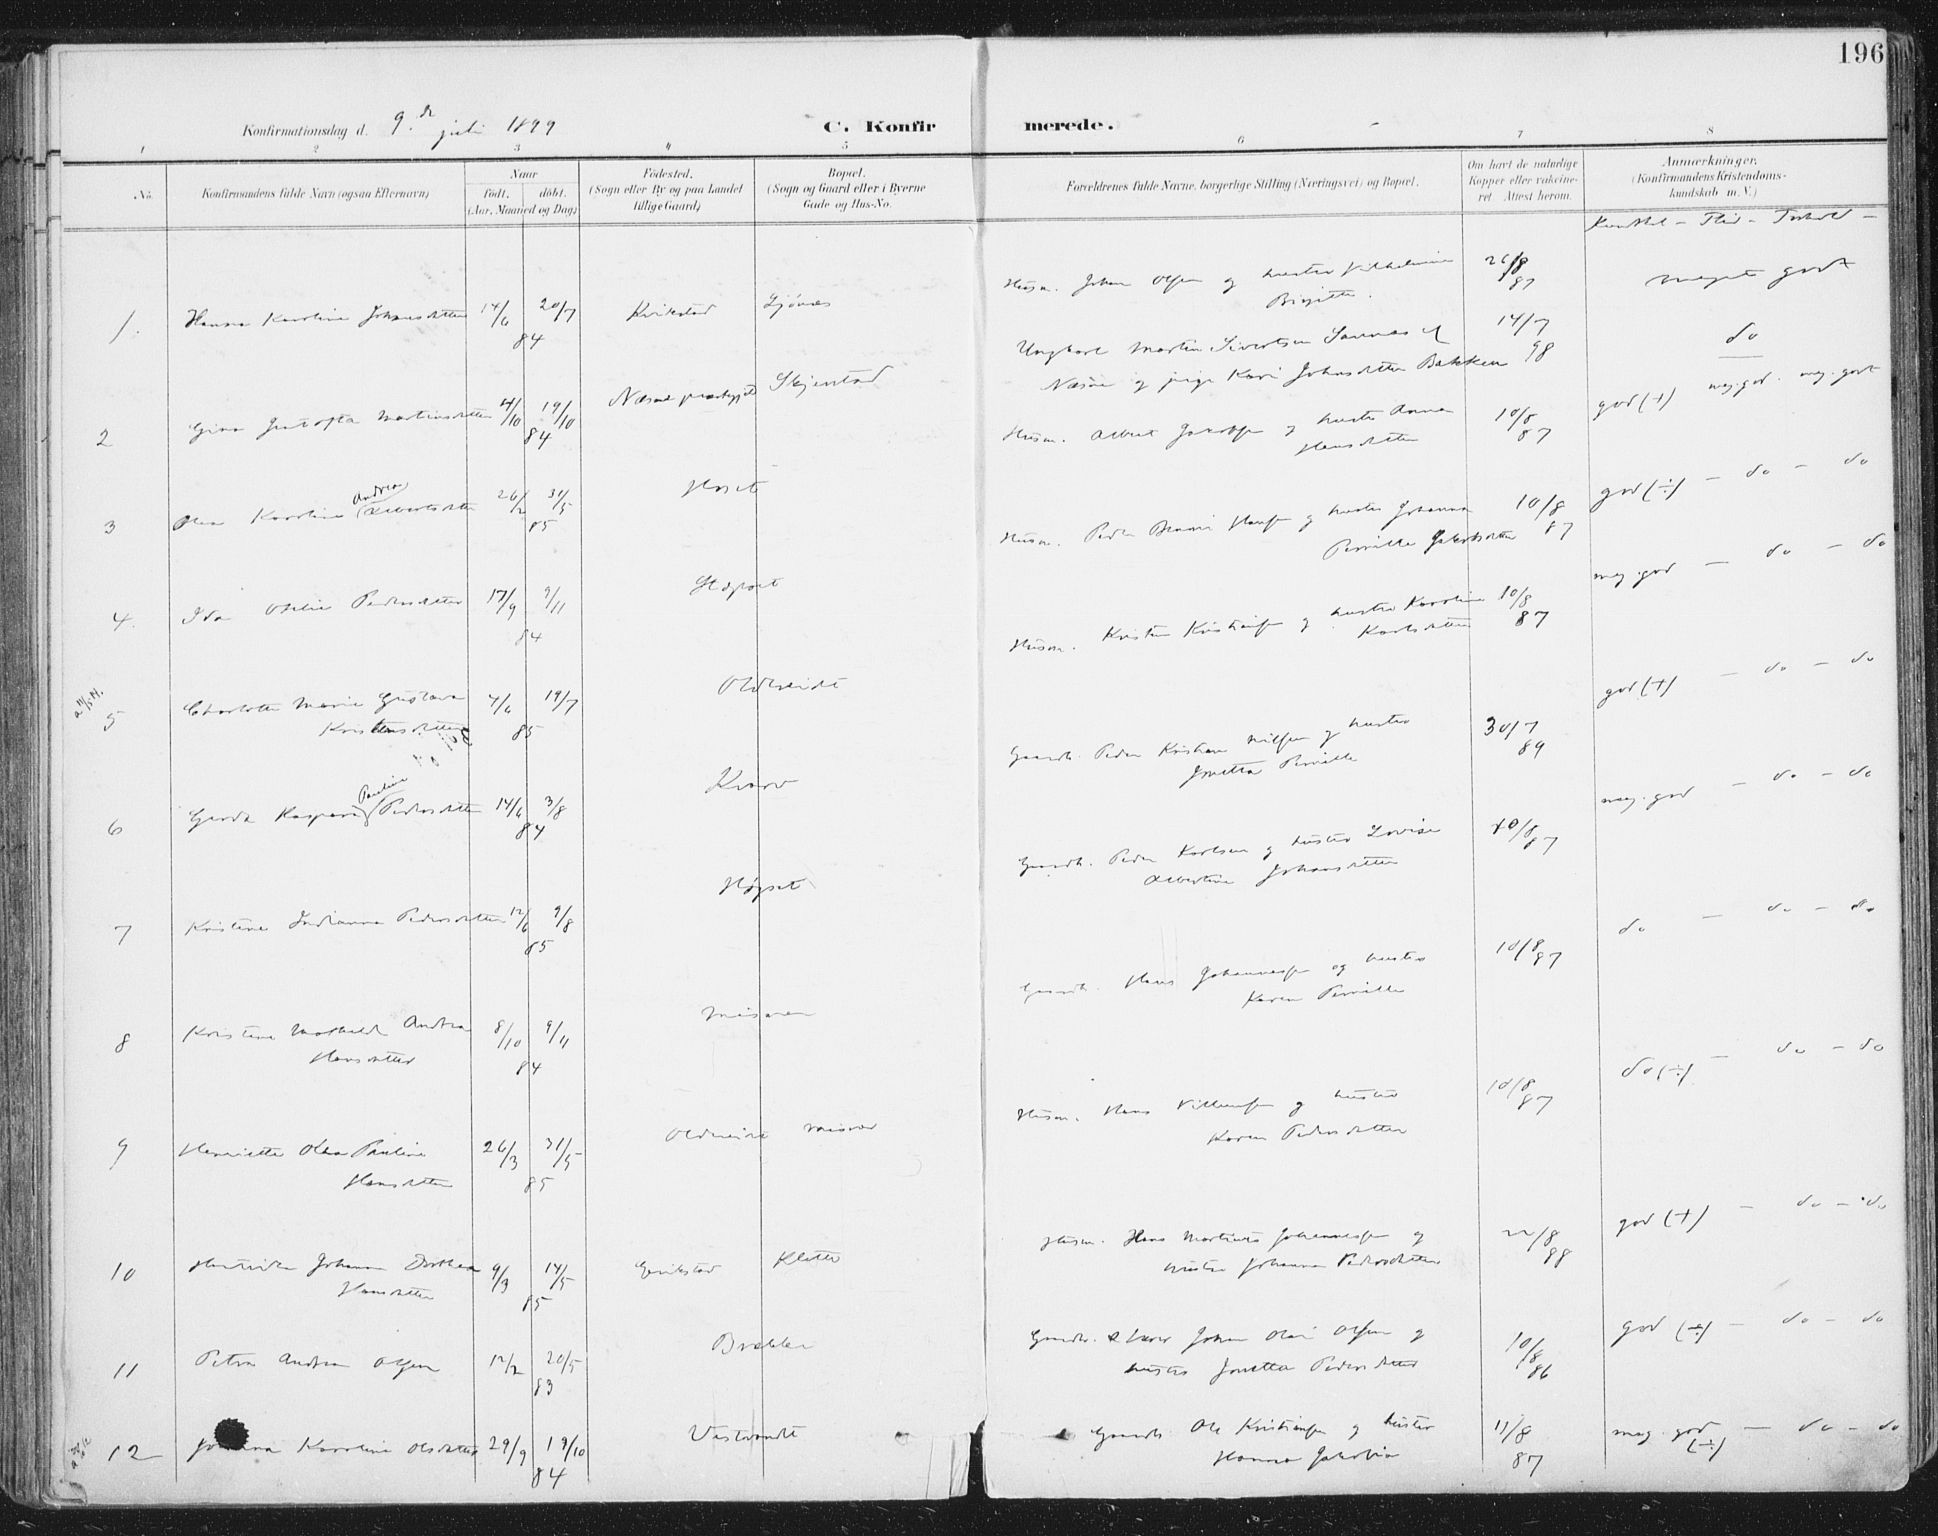 196
Konfirmationsdag d. 9.de juli 1899
C. Konfir merede.
1 2 3 4 5 6 7 8
No.
Konfirmandens fulde Navn (ogsaa Efternavn)
Naar
født. døbt.
(Aar, Maaned og Dag)
Fødested.
(Sogn eller By og paa Landet
tillige Gaard)
Bopæl.
(Sogn og Gaard eller i Byerne
Gade og Hus-No.
Forældrenes fulde Navne, borgerlige Stilling (Næringsvei) og Bopæl.
Om havt de naturlige
Kopper eller vakcine-
ret. Attest herom.
Anmærkninger.
(Konfirmandens Kristendoms-
kundskab m. V.)
Kundsk - Flid - Forhold -
1. Hanna Karoline Johansdatter 14/6 20/7 84
Husm. Johan Olsen og hustru Vilhelmine
Birgitte.
26/8 87
meget godt
2 Gina Martinsdatter 4/10 19/10 84
Skjerstad
Ungkarl Martin Sivertsen
Næsne og pige Kari Johnsdatter Bakken
14/7 98
do
3 Olea Karoline Andrea Albertsdatter 26/2 31/5 85
Høset
Husm. Albert Jakobsen og hustru Anna
Hansdatter
10/8 87
god (+) meg. god. meg. godt
4. Ida Otelie Pedersdatter 17/9 9/11 84
Husm. Peder Hansen og hustru Johanna
Pernille Jakobsdatter
10/8 87
god (÷) - do - do
5 Charlotte Marie Gustava
Kristensdatter
4/6 19/7 85
Husm. Kristen Kristiansen og hustru Karoline
Karlsdatter
10/8 87
meg. god - do - do
6 Gerda Kaspara Pauline Pedersdatter 14/6 3/8 84
Kvarv
Gaardb. Peder Kristian Nilsen og hustru
Jonetta Pernille
30/7 89
god (+) - do - do
7 Kristine Indianna Pedersdatter 12/6 9/8 85
Høgset
Gaardb. Peder Karlsen og hustru Lovise
Albertine Johansdatter
10/8 87
meg. god - do - do
8 Kristine Mathilde Andrea
Hansdatter
8/10 9/11 84
Misvær
Gaardb. Hans Johannessen og hustru
Karen Pernille
10/8 87
do - do - do
9 Henriette Olea Pauline
Hansdatter
26/3 31/5 85
Misvær
Husm. Hans Villumsen og hustru
Karen Pedersdatter
10/8 87
do (÷) - do - do
10 Johanna Dorthea
Hansdatter
9/3 14/5 85
Klette
Husm. Hans Martinus Johannessen og
hustru Johanna Pedersdatter
22/8 88
god (+) - do - do
11 Petra Andrea Olsen 12/2 20/5 83
Gaardb. & lærer Johan Olai Olsen og
hustru Jonetta Pedersdatter
10/8 86
god (÷) - do - do
12 Johanna Karoline Olsdatter 29/9 19/10 84
Vestvandt
Gaardb. Ole Kristiansen og hustru
Hanna Jakobia
11/8 87
meg. god (÷) - do - do